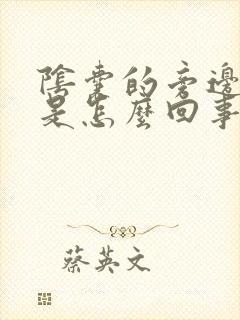 陰囊的旁邊
是怎麼回事
蔡英文